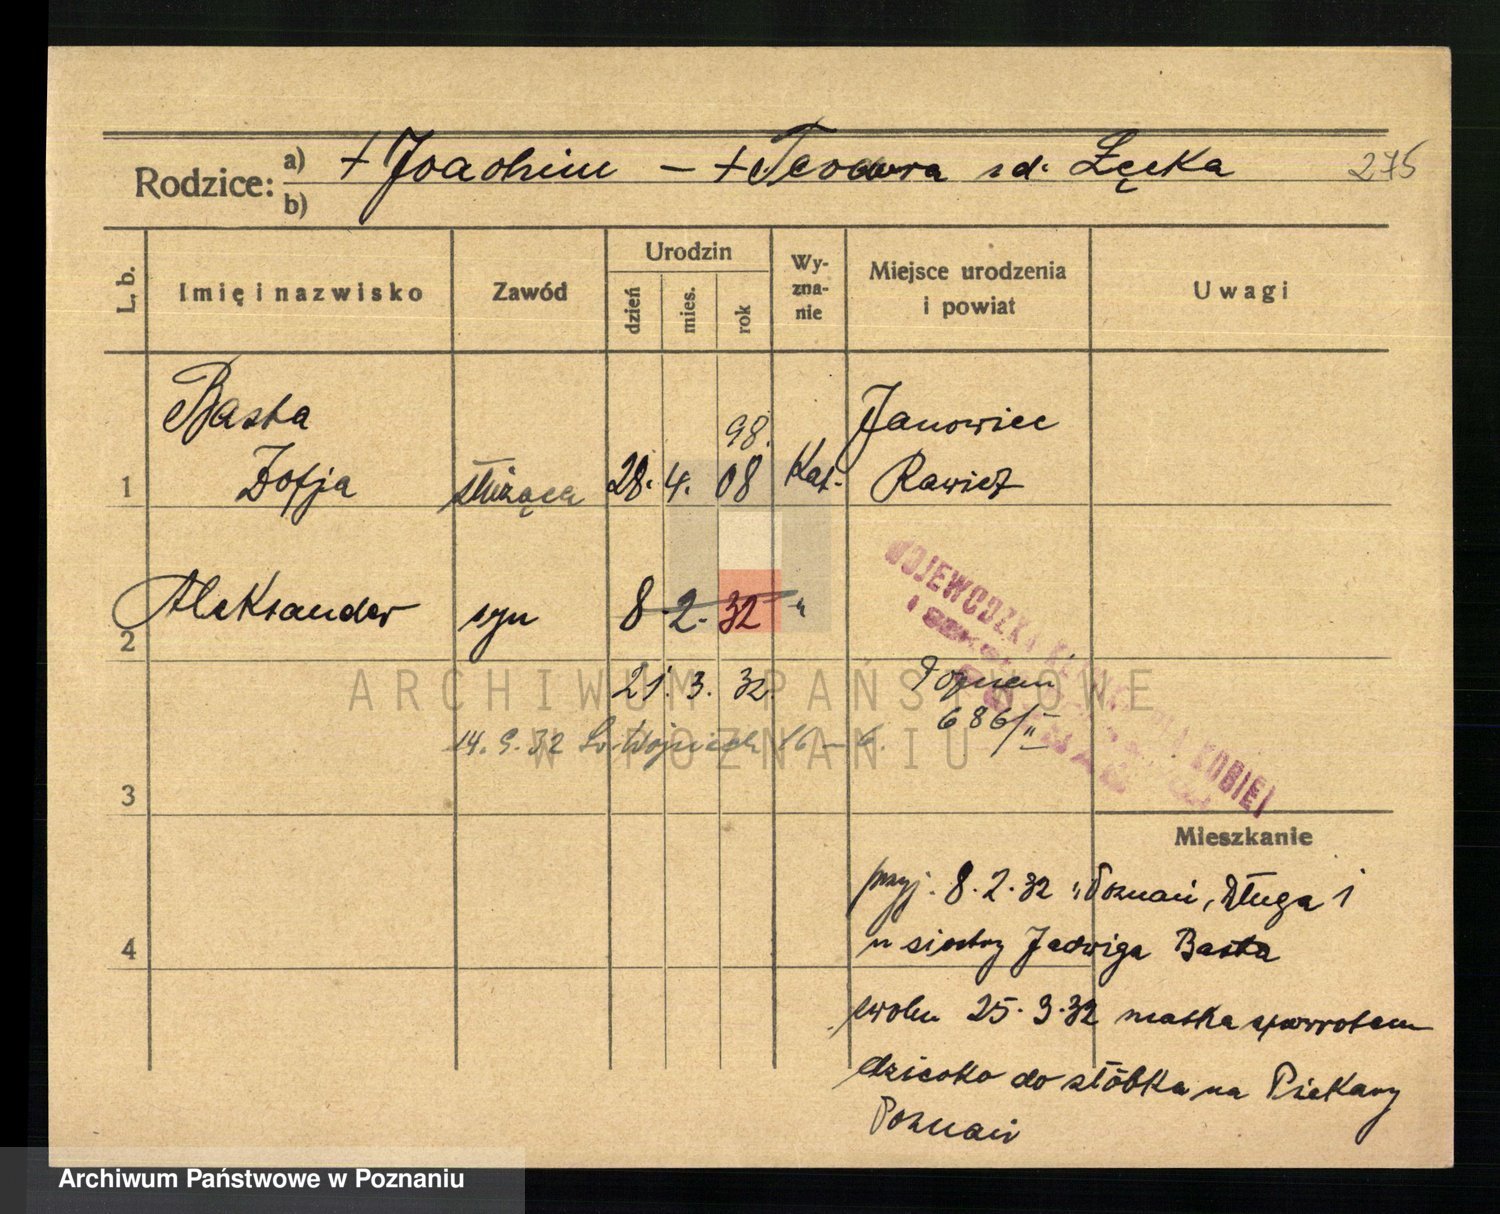 Rodzice: a) + Joachim – + Teodora z d. Łęcka 275
b)
L. b. Imię i nazwisko Zawód Urodzin dzień mies. rok Wy-zna-nie Miejsce urodzenia i powiat Uwagi
Basta 98. Janowiec
1 Zofja służąca 28. 4. 08 Kat. Rawicz
2 Aleksander syn 8. 2. 32 "
WOJEWÓDZKA KLINIKA DLA KOBIET
21. 3. 32. Poznań
686/II
14. 5. 32 Św. Wojciech 16 – 6.
ARCHIWUM PAŃSTWOWE
W POZNANIU
3
Mieszkanie
przyj. 8.2.32 z Poznań, Długa 1
4 u siostry Jadwiga Basta
zwoln 25.3.32 matka zpowrotem
dziecko do żłóbka na Piekary
Poznań
Archiwum Państwowe w Poznaniu